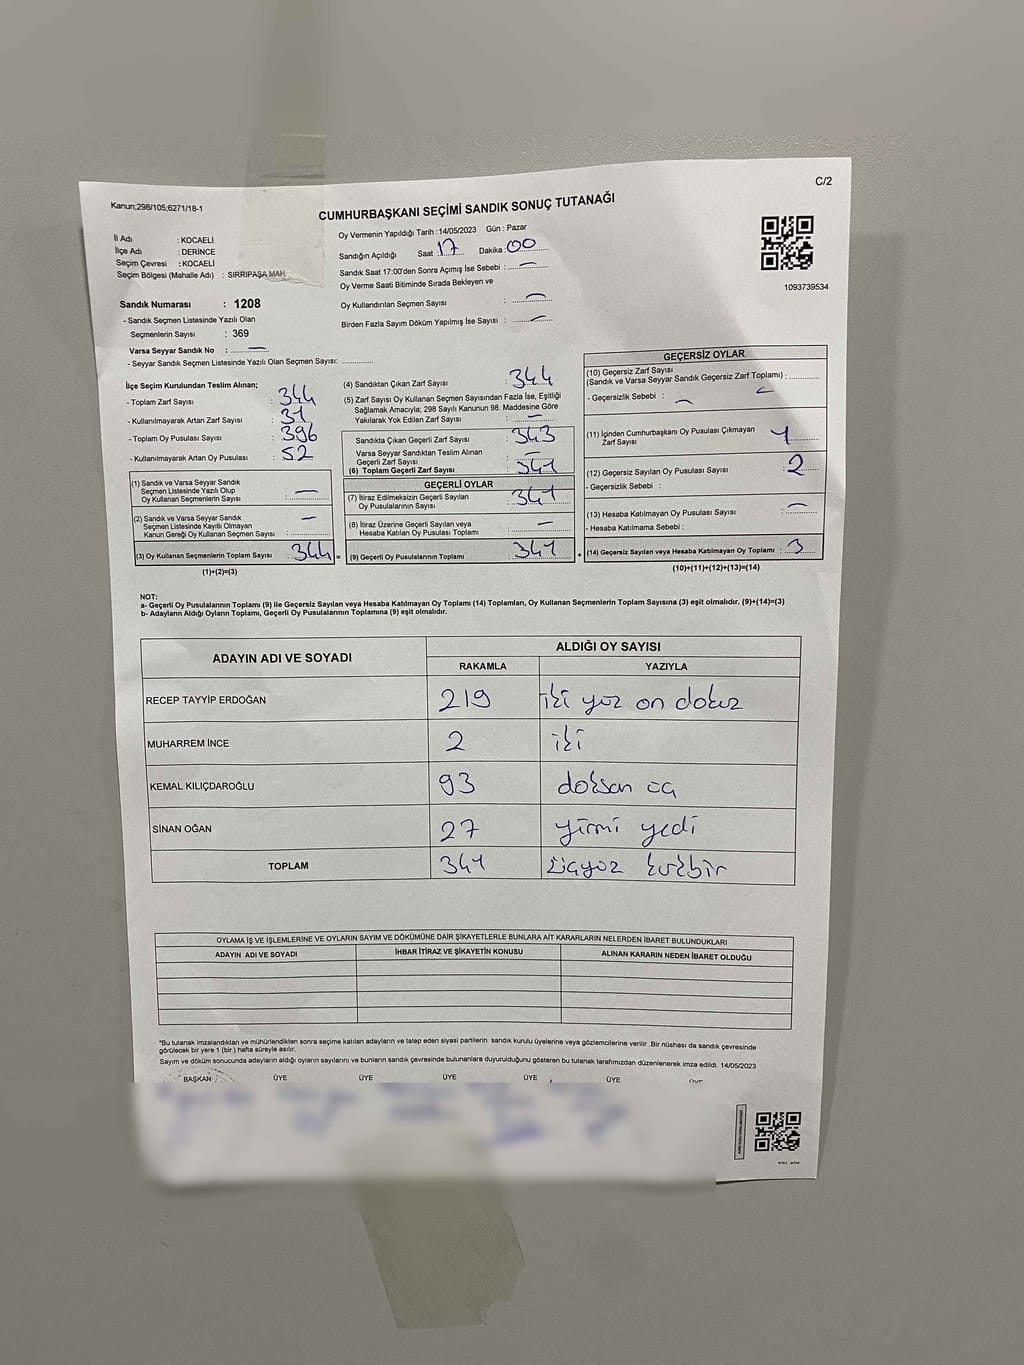 C/2
Kanun;298/105;6271/18-1
CUMHURBAŞKANI SEÇİMİ SANDIK SONUÇ TUTANAĞI
İl Adı : KOCAELİ
İlçe Adı : DERİNCE
Seçim Çevresi : KOCAELİ
Seçim Bölgesi (Mahalle Adı) : SIRRIPAŞA MAH.
Sandık Numarası : 1208
- Sandık Seçmen Listesinde Yazılı Olan
Seçmenlerin Sayısı : 369
Varsa Seyyar Sandık No : —
- Seyyar Sandık Seçmen Listesinde Yazılı Olan Seçmen Sayısı:
Oy Vermenin Yapıldığı Tarih :14/05/2023 Gün : Pazar
Sandığın Açıldığı Saat :17 Dakika :00
Sandık Saat 17:00'den Sonra Açımış İse Sebebi : —
Oy Verme Saati Bitiminde Sırada Bekleyen ve
Oy Kullandırılan Seçmen Sayısı : —
Birden Fazla Sayım Döküm Yapılmış İse Sayısı : —
1093739534
İlçe Seçim Kurulundan Teslim Alınan;
- Toplam Zarf Sayısı : 344
- Kullanılmayarak Artan Zarf Sayısı : 31
- Toplam Oy Pusulası Sayısı : 396
- Kullanılmayarak Artan Oy Pusulası : 52
(1) Sandık ve Varsa Seyyar Sandık
Seçmen Listesinde Yazılı Olup
Oy Kullanan Seçmenlerin Sayısı : —
(2) Sandık ve Varsa Seyyar Sandık
Seçmen Listesinde Kayıtlı Olmayan
Kanun Gereği Oy Kullanan Seçmen Sayısı : —
(3) Oy Kullanan Seçmenlerin Toplam Sayısı : 344 =
(1)+(2)=(3)
(4) Sandıktan Çıkan Zarf Sayısı : 344
(5) Zarf Sayısı Oy Kullanan Seçmen Sayısından Fazla İse, Eşitliği
Sağlamak Amacıyla; 298 Sayılı Kanunun 98. Maddesine Göre
Yakılarak Yok Edilen Zarf Sayısı : —
Sandıkta Çıkan Geçerli Zarf Sayısı : 343
Varsa Seyyar Sandıktan Teslim Alınan
Geçerli Zarf Sayısı : —
(6) Toplam Geçerli Zarf Sayısı : 341
GEÇERLİ OYLAR
(7) İtiraz Edilmeksizin Geçerli Sayılan
Oy Pusulalarının Sayısı : 341
(8) İtiraz Üzerine Geçerli Sayılan veya
Hesaba Katılan Oy Pusulası Toplamı : —
(9) Geçerli Oy Pusulalarının Toplamı : 341 +
GEÇERSİZ OYLAR
(10) Geçersiz Zarf Sayısı
(Sandık ve Varsa Seyyar Sandık Geçersiz Zarf Toplamı) : —
- Geçersizlik Sebebi : —
(11) İçinden Cumhurbaşkanı Oy Pusulası Çıkmayan
Zarf Sayısı : 1
(12) Geçersiz Sayılan Oy Pusulası Sayısı : 2
- Geçersizlik Sebebi :
(13) Hesaba Katılmayan Oy Pusulası Sayısı : —
- Hesaba Katılmama Sebebi :
(14) Geçersiz Sayılan veya Hesaba Katılmayan Oy Toplamı : 3
(10)+(11)+(12)+(13)=(14)
NOT:
a- Geçerli Oy Pusulalarının Toplamı (9) ile Geçersiz Sayılan veya Hesaba Katılmayan Oy Toplamı (14) Toplamları, Oy Kullanan Seçmenlerin Toplam Sayısına (3) eşit olmalıdır. (9)+(14)=(3)
b- Adayların Aldığı Oyların Toplamı, Geçerli Oy Pusulalarının Toplamına (9) eşit olmalıdır.
ADAYIN ADI VE SOYADI ALDIĞI OY SAYISI
RAKAMLA YAZIYLA
RECEP TAYYİP ERDOĞAN 219 iki yüz on dokuz
MUHARREM İNCE 2 iki
KEMAL KILIÇDAROĞLU 93 doksan üç
SİNAN OĞAN 27 yirmi yedi
TOPLAM 341 üçyüz kırkbir
OYLAMA İŞ VE İŞLEMLERİNE VE OYLARIN SAYIM VE DÖKÜMÜNE DAİR ŞİKAYETLERLE BUNLARA AİT KARARLARIN NELERDEN İBARET BULUNDUKLARI
ADAYIN ADI VE SOYADI İHBAR İTİRAZ VE ŞİKAYETİN KONUSU ALINAN KARARIN NEDEN İBARET OLDUĞU
*Bu tutanak imzalandıktan ve mühürlendikten sonra seçime katılan adayların ve talep eden siyasi partilerin sandık kurulu üyelerine veya gözlemcilerine verilir .Bir nüshası da sandık çevresinde
görülecek bir yere 1 (bir ) hafta süreyle asılır.
Sayım ve döküm sonucunda adayların aldığı oyların sayılarını ve bunların sandık çevresinde bulunanlara duyurulduğunu gösteren bu tutanak tarafımızdan düzenlenerek imza edildi. 14/05/2023
BAŞKAN ÜYE ÜYE ÜYE ÜYE ÜYE